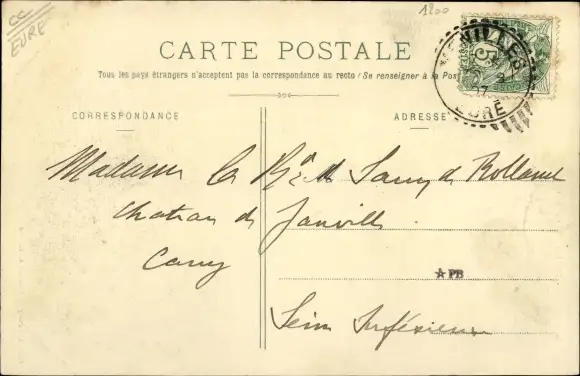 CC
EURE
1200
CARTE POSTALE
Tous les pays étrangers n'acceptent pas la correspondance au recto (Se renseigner à la Pos
CORRESPONDANCE
ADRESSE
5
EURE
Madame la Bne de Rolland
Chateau de Janville
Cany
PB
Seine Inférieure